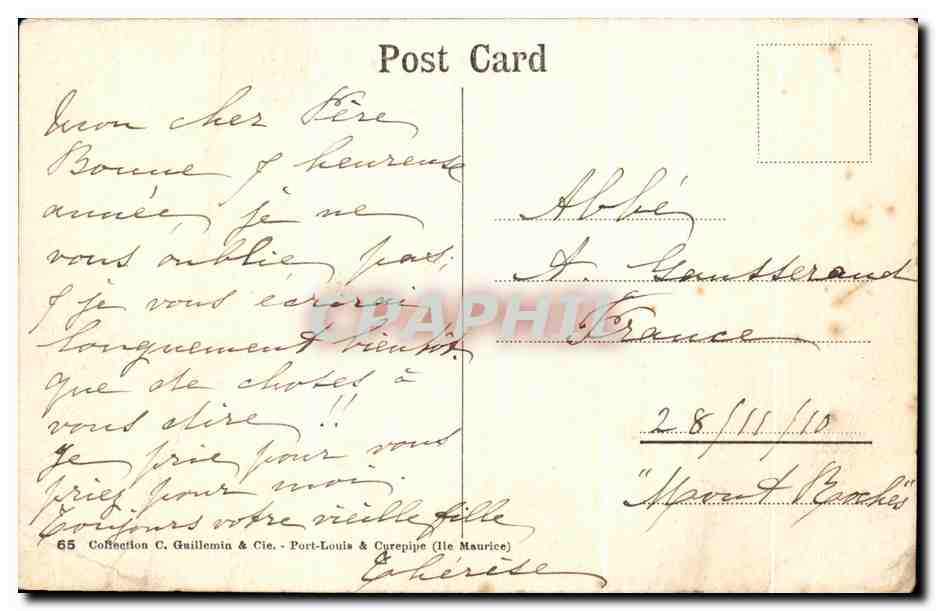 Post Card
Mon cher Père
Bonne & heureuse
année, je ne
vous oublie pas;
& je vous écrirai
longuement bientôt.
que de choses à
vous dire !!
Je prie pour vous
priez pour moi.
Toujours votre vieille fille
Thérèse
65 Collection C. Guillemin & Cie. - Port-Louis & Curepipe (Ile Maurice)
Abbé
A. Gausserand
France
28/11/10
"Mont Roches"
CPAPHIL